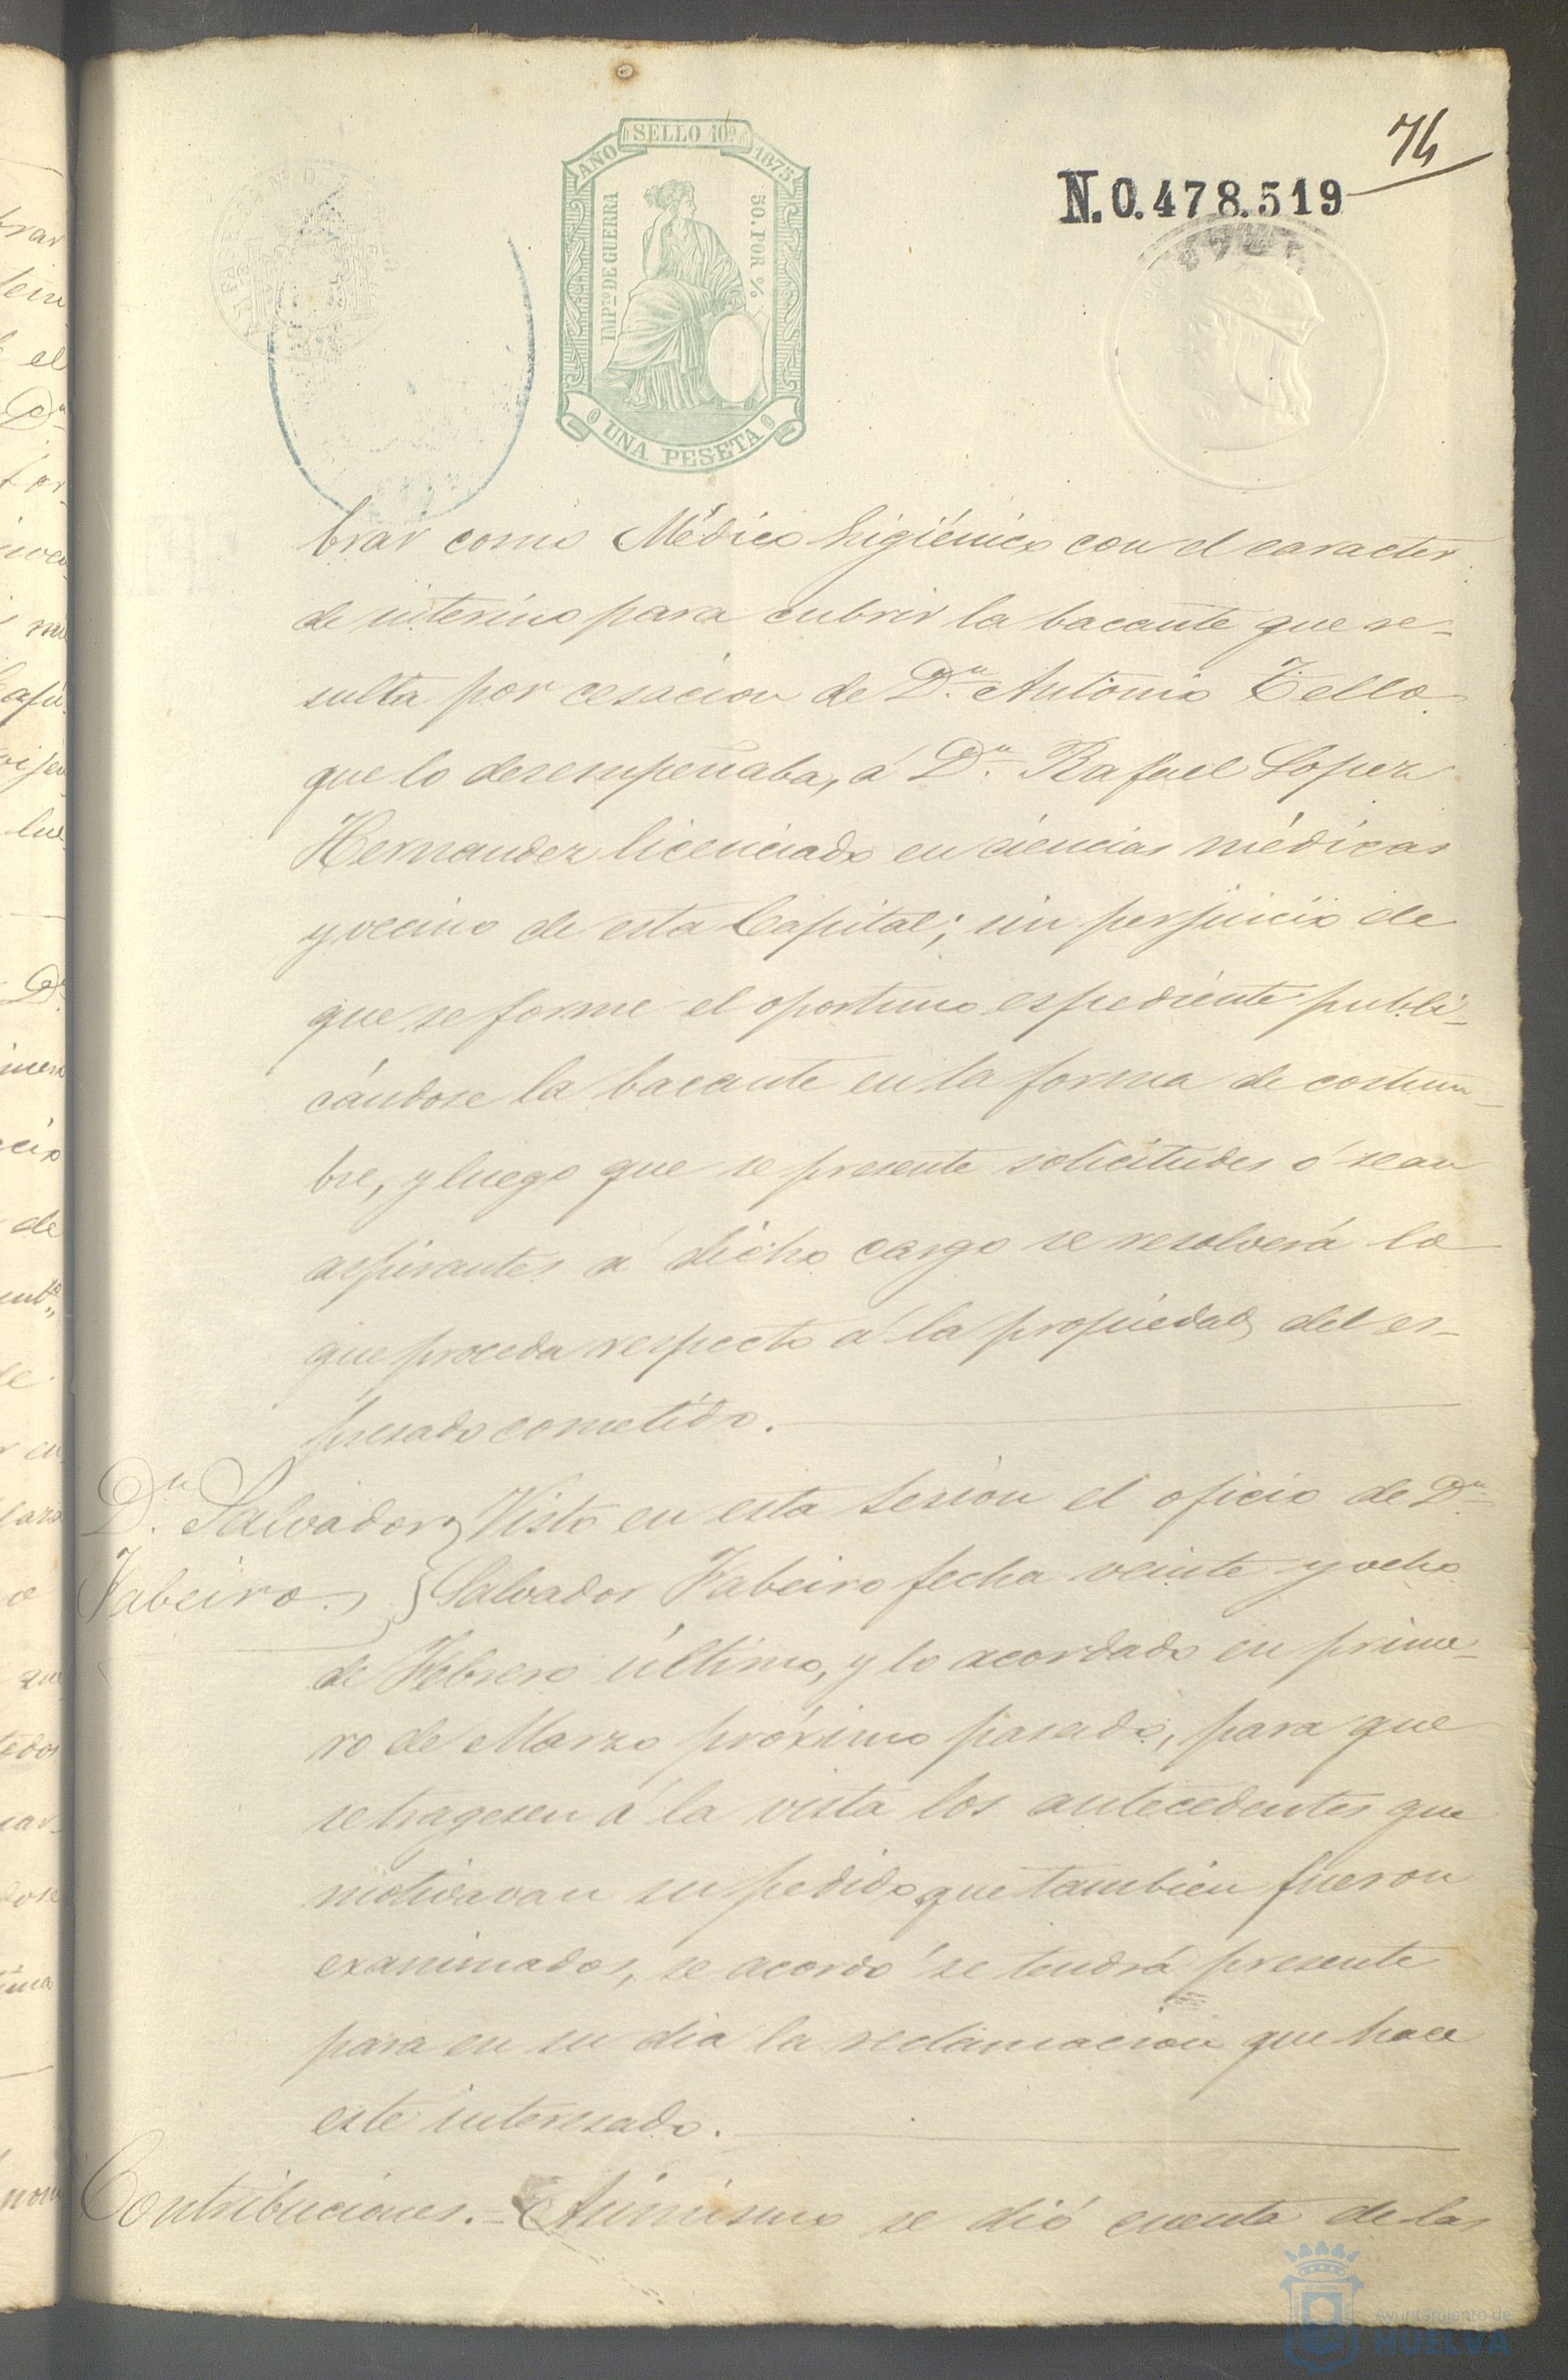 74
AÑO SELLO 10º 1875
IMPTO DE GUERRA
50 POR %
UNA PESETA
N.0.478.519
brar como Médico higiénico con el caracter
de interino para cubrir la bacante que re-
sulta por cesacion de Dn. Antonio Tello
que lo desempeñaba, á Dn. Rafael Lopez
Hernandez licenciado en ciencias médicas
y vecino de esta Capital; sin perjuicio de
que se forme el oportuno espediente publi-
cándose la bacante en la forma de costum-
bre, y luego que se presente solicitudes ó sean
aspirantes á dicho cargo se resolverá lo
que proceda respecto á la propiedad del es-
presado cometido.
Dn. Salvador Visto en esta sesion el oficio de Dn.
Fabeiro. Salvador Fabeiro fecha veinte y ocho
de Febrero último, y lo acordado en prime-
ro de Marzo próximo pasado, para que
se tragesen á la vista los antecedentes que
motivavan su pedido que tambien fueron
examinados, se acordó se tendrá presente
para en su dia la reclamacion que hace
este interesado.
Contribuciones.= Asimismo se dió cuenta de las
Ayuntamiento de
HUELVA